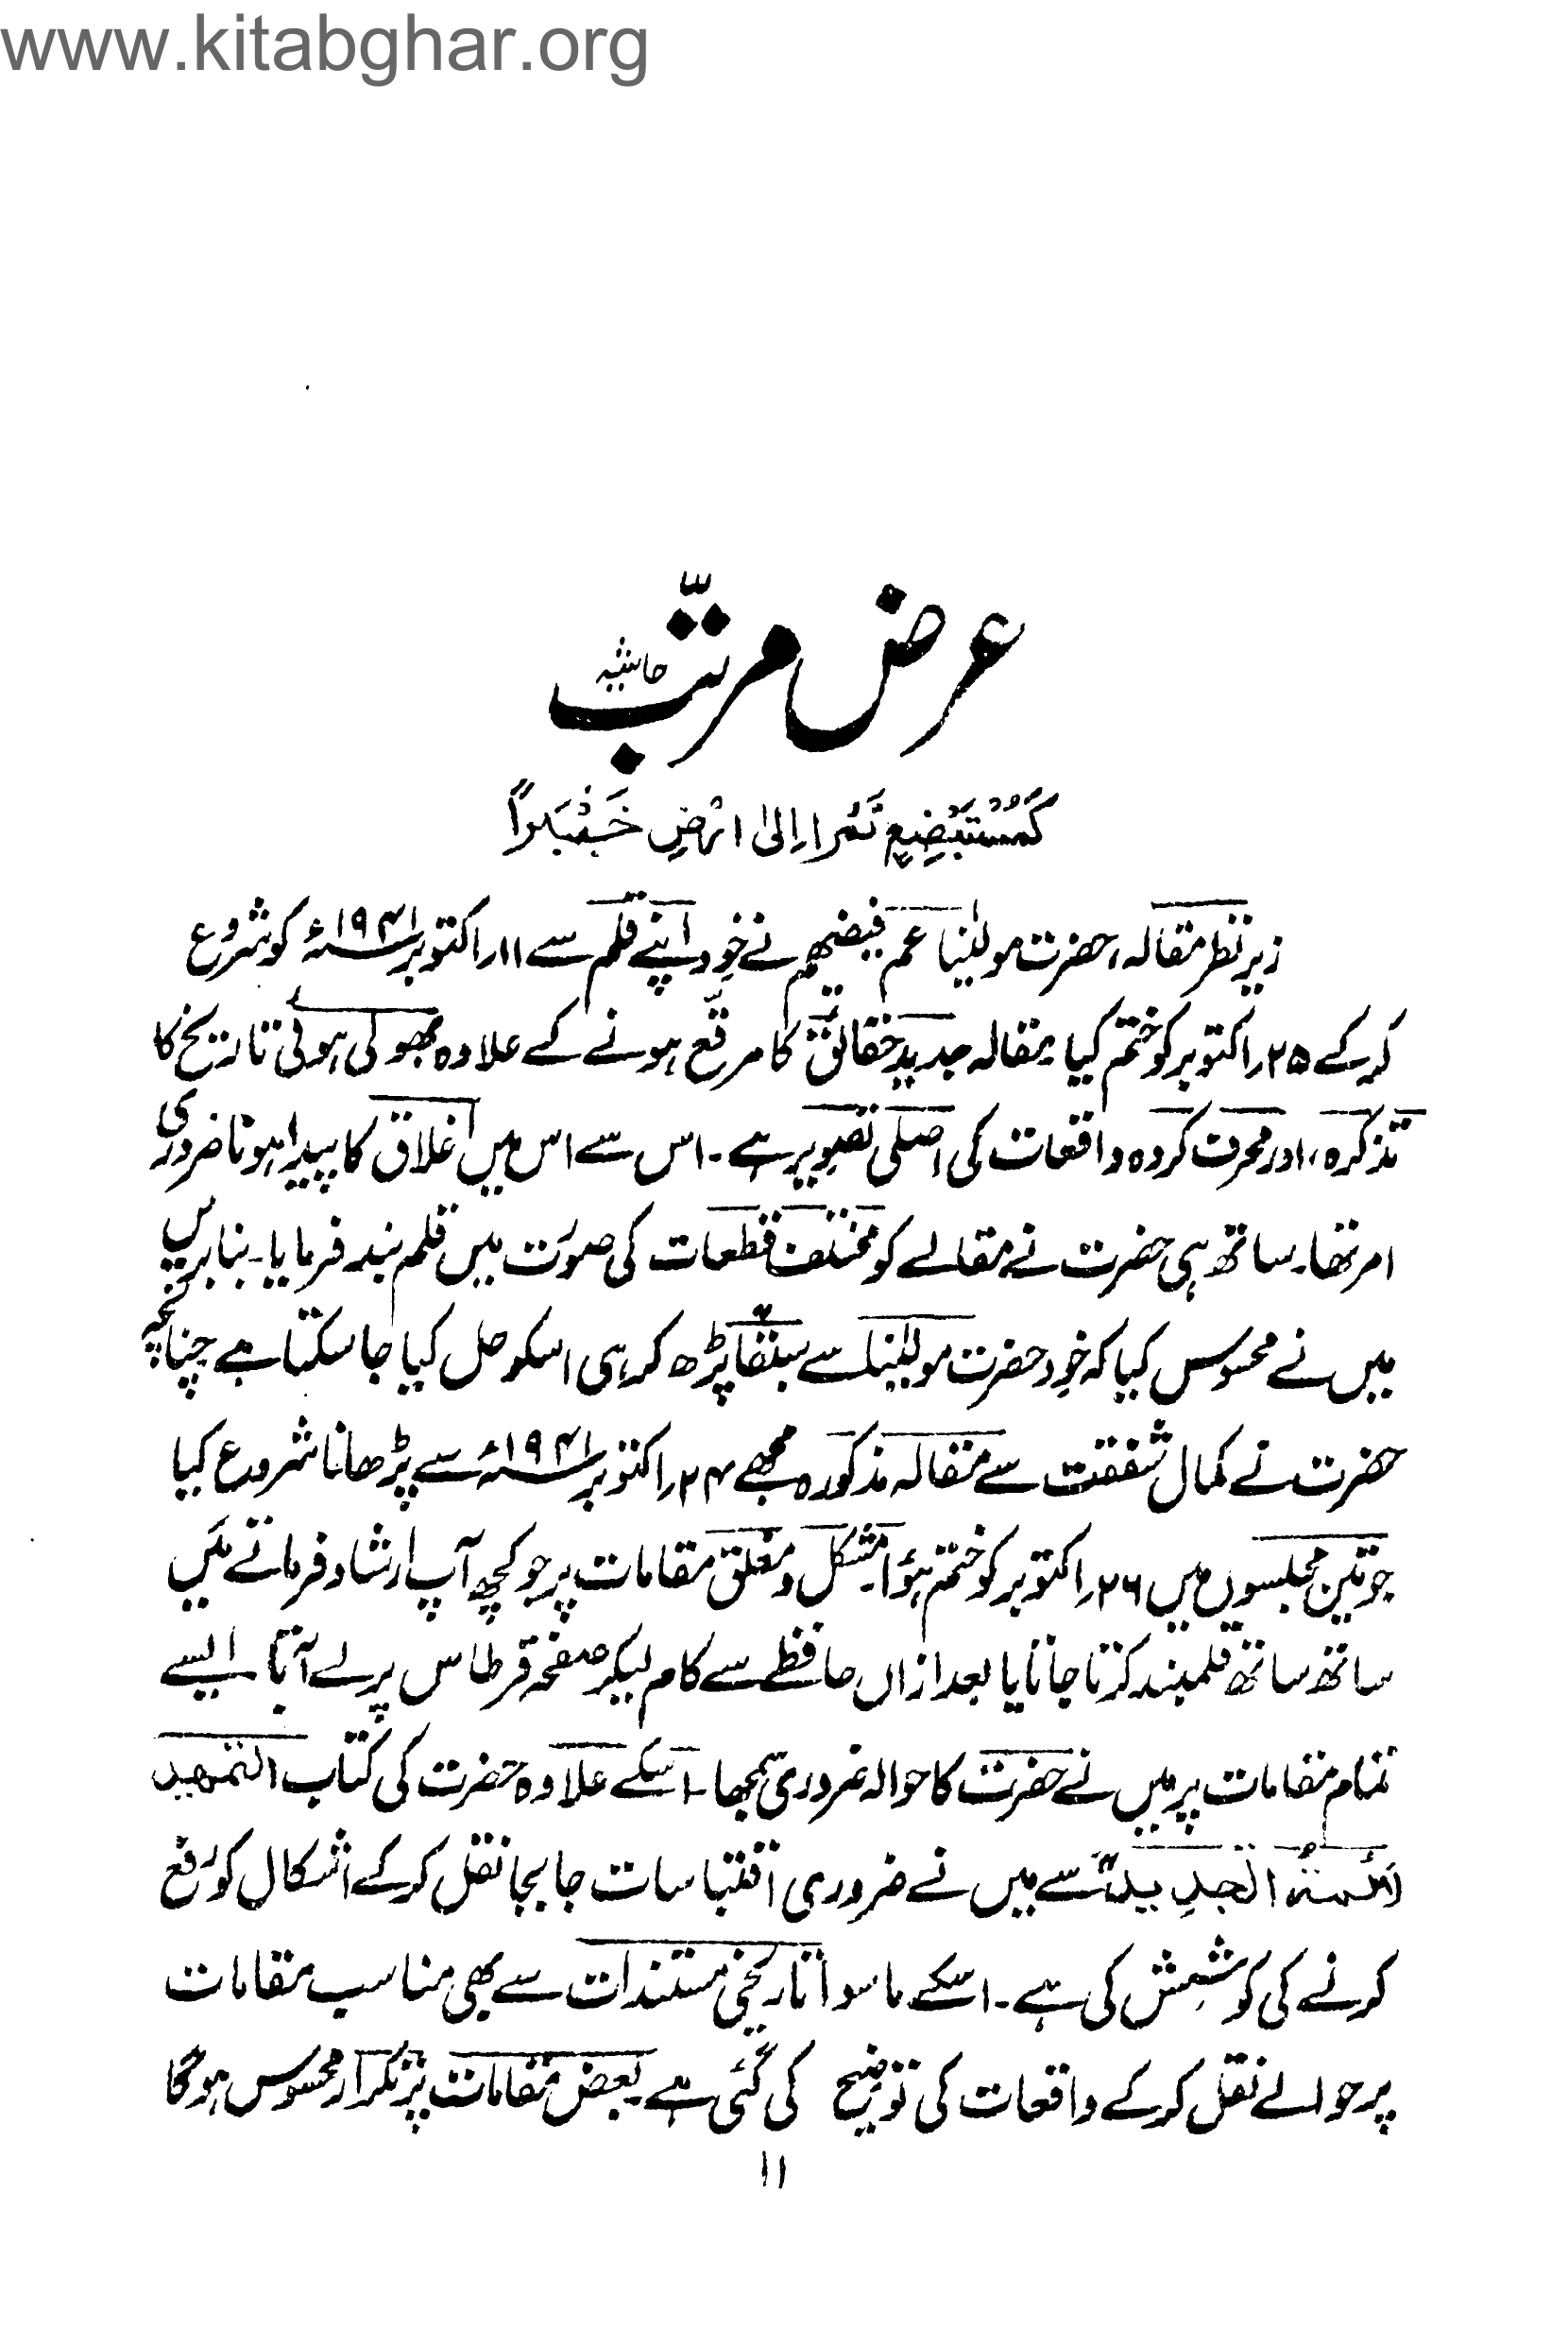 www.kitabghar.org
عرض مرتّب
حاشیہ
كَمُسْتَبْضِعٍ تَمْرًا إِلىٰ ارْضِ خَيْبَراً
زیر نظر مقالہ، حضرت مولٰینا عم فیضہم نے خود اپنے قلم سے ۱۱ر اکتوبر ۱۹۴۱ء کو شروع
کر کے ۲۵ر اکتوبر کو ختم کیا یہ مقالہ جدید حقائق کا مرقّع ہونے کے علاوہ بھولی ہوئی تاریخ کا
تذکرہ، اور محرف کردہ واقعات کی اصلی تصویر ہے۔ اس سے اس میں اغلاق کا پیدا ہونا ضروری
امر تھا۔ ساتھ ہی حضرت نے مقالے کو مختلف قطعات کی صورت میں قلم بند فرمایا۔ بنا بریں
میں نے محسوس کیا کہ خود حضرت مولٰینا سے سبقًا پڑھ کر ہی اسکو حل کیا جا سکتا ہے چنانچہ
حضرت نے کمال شفقت سے مقالہ مذکورہ مجھے ۲۴ر اکتوبر ۱۹۴۱ء سے پڑھانا شروع کیا
جو تین مجلسوں میں ۲۶ر اکتوبر کو ختم ہؤا۔ مشکل و مغلق مقامات پر جو کچھ آپ ارشاد فرماتے میں
ساتھ ساتھ قلمبند کرتا جاتا یا بعد ازاں حافظے سے کام لیکر صفحہ قرطاس پر لے آتا۔ ایسے
تمام مقامات پر میں نے حضرت کا حوالہ ضروری سمجھا۔ اسکے علاوہ حضرت کی کتاب التمهید
لائمة التجدید" سے میں نے ضروری اقتباسات جا بجا نقل کر کے اشکال کو رفع
کرنے کی کوشش کی ہے۔ اسکے ماسوا تاریخی مستندات سے بھی مناسب مقامات
پر حوالے نقل کر کے واقعات کی توضیح کی گئی ہے۔ بعض مقامات پر تکرار محسوس ہوگا
۱۱